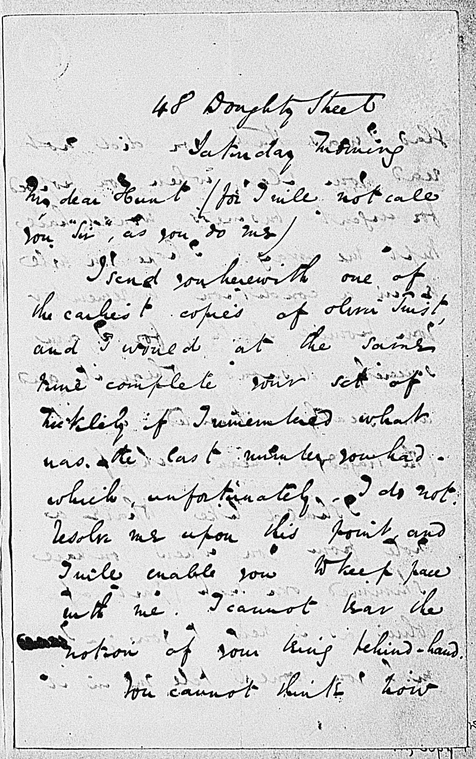 48 Doughty Street
Saturday Morning
My dear Hunt (for I will not call
you "Sir", as you do me)
I send you herewith one of
the earliest copies of Oliver Twist,
and I would at the same
time complete your set of
Nickleby if I remembered what
was the last number you had -
which, unfortunately, I do not.
Resolve me upon this point, and
I will enable you to keep pace
with me. I cannot bear the
notion of your being behind-hand.
You cannot think how